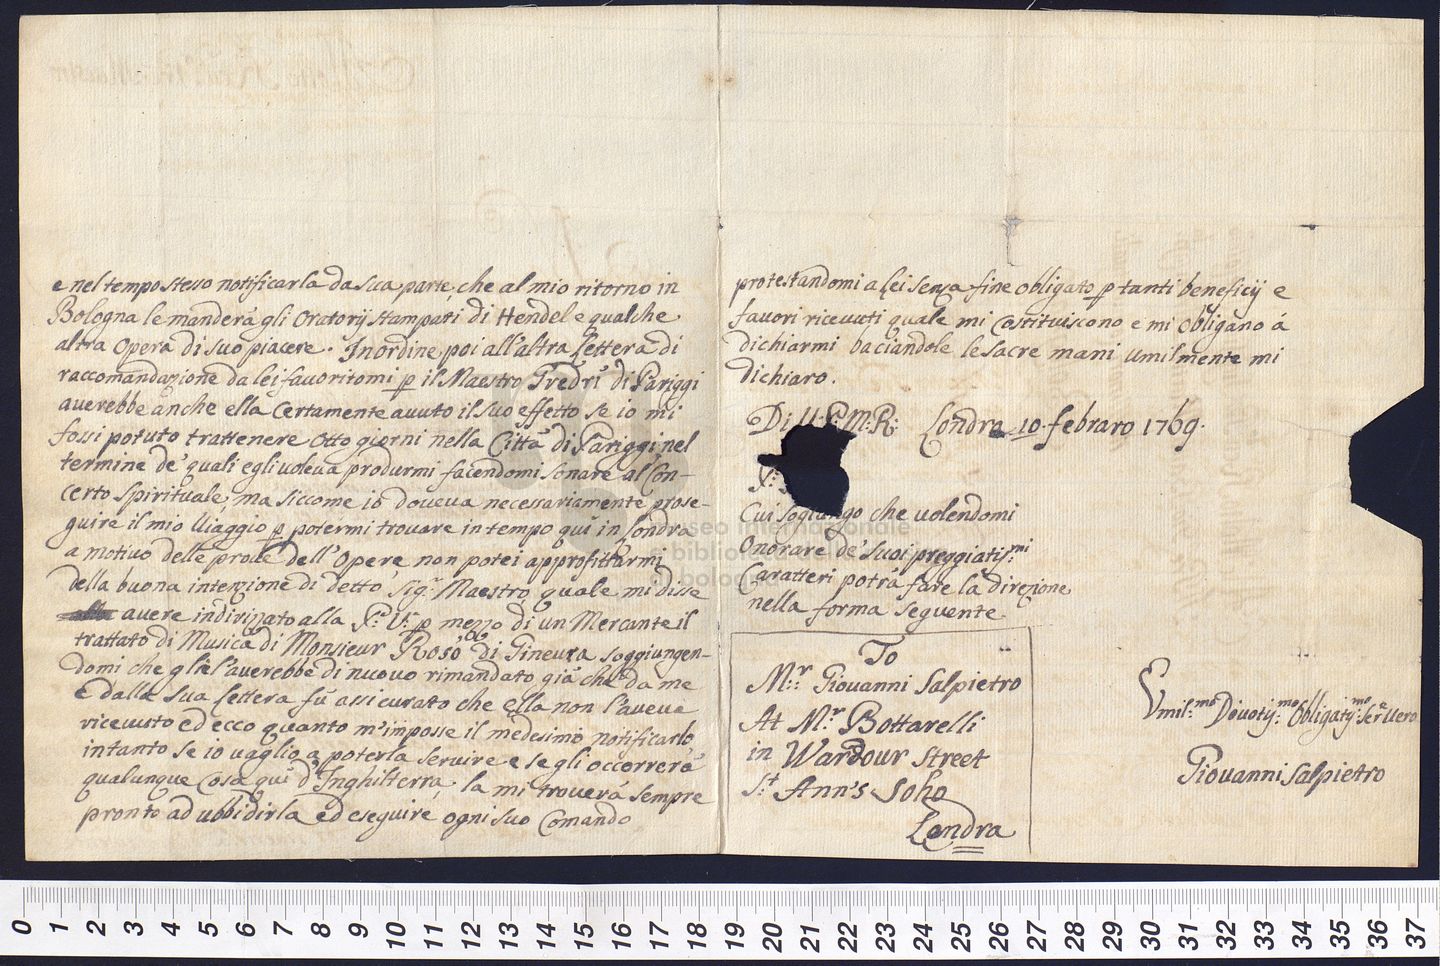 e nel tempo stesso notificarla da sua parte, che al mio ritorno in
Bologna le manderá gli Oratorij stampati di Hendel e qualche
altra Opera di suo piacere. In ordine poi all'altra Lettera di
raccomandazione da lei favoritomi p il Maestro Fredri di Pariggi
averebbe anche ella certamente avuto il suo effetto se io mi
fossi potuto trattenere Otto giorni nella Cittá di Pariggi nel
termine de' quali egli voleva produrmi facendomi sonare al Con-
certo Spirituale, ma siccome io doveva necessariamente prose-
guire il mio Viaggio p potermi trovare in tempo qui in Londra
a motivo delle prove dell'Opere non potei approfittarmi
della buona intenzione di detto Sig.r Maestro, quale mi disse
avere indirizzato alla P.tà V.a p mezzo di un Mercante il
trattato di Musica di Monsieur Rosó di Gineura soggiungen-
domi che gliel'averebbe di nuovo rimandato giá che da me
e dalla sua Lettera fú assicurato che ella non l'aveva
ricevuto ed ecco quanto m'impose il medesimo notificarlo
intanto se io vaglio a poterla servire e se gli occorrerá
qualunque Cosa qui d'Inghilterra, la mi troverá sempre
pronto ad ubbidirla ed eseguire ogni suo Comando
protestandomi a Lei senza fine obligato p tanti beneficij e
favori ricevuti quale mi Costituiscono e mi obligano á
dichiarmi baciandole le sacre mani umilmente mi
dichiaro.
Di V. P. M. R: Londra 10. febraro 1769.
P.
Cui sogiungo che volendomi
Onorare de' suoi preggiatis.mi
Caratteri potrá fare la direzione
nella forma seguente.
To
M.r Giovanni Salpietro
At M.r Bottarelli
in Wardour Street
S.t Ann's Soho
Londra
Umil.mo Divotiss.mo Obligatiss.mo Ser.e Vero
Giovanni Salpietro
museo internazionale
e biblioteca della musica
di bologna
0 1 2 3 4 5 6 7 8 9 10 11 12 13 14 15 16 17 18 19 20 21 22 23 24 25 26 27 28 29 30 31 32 33 34 35 36 37